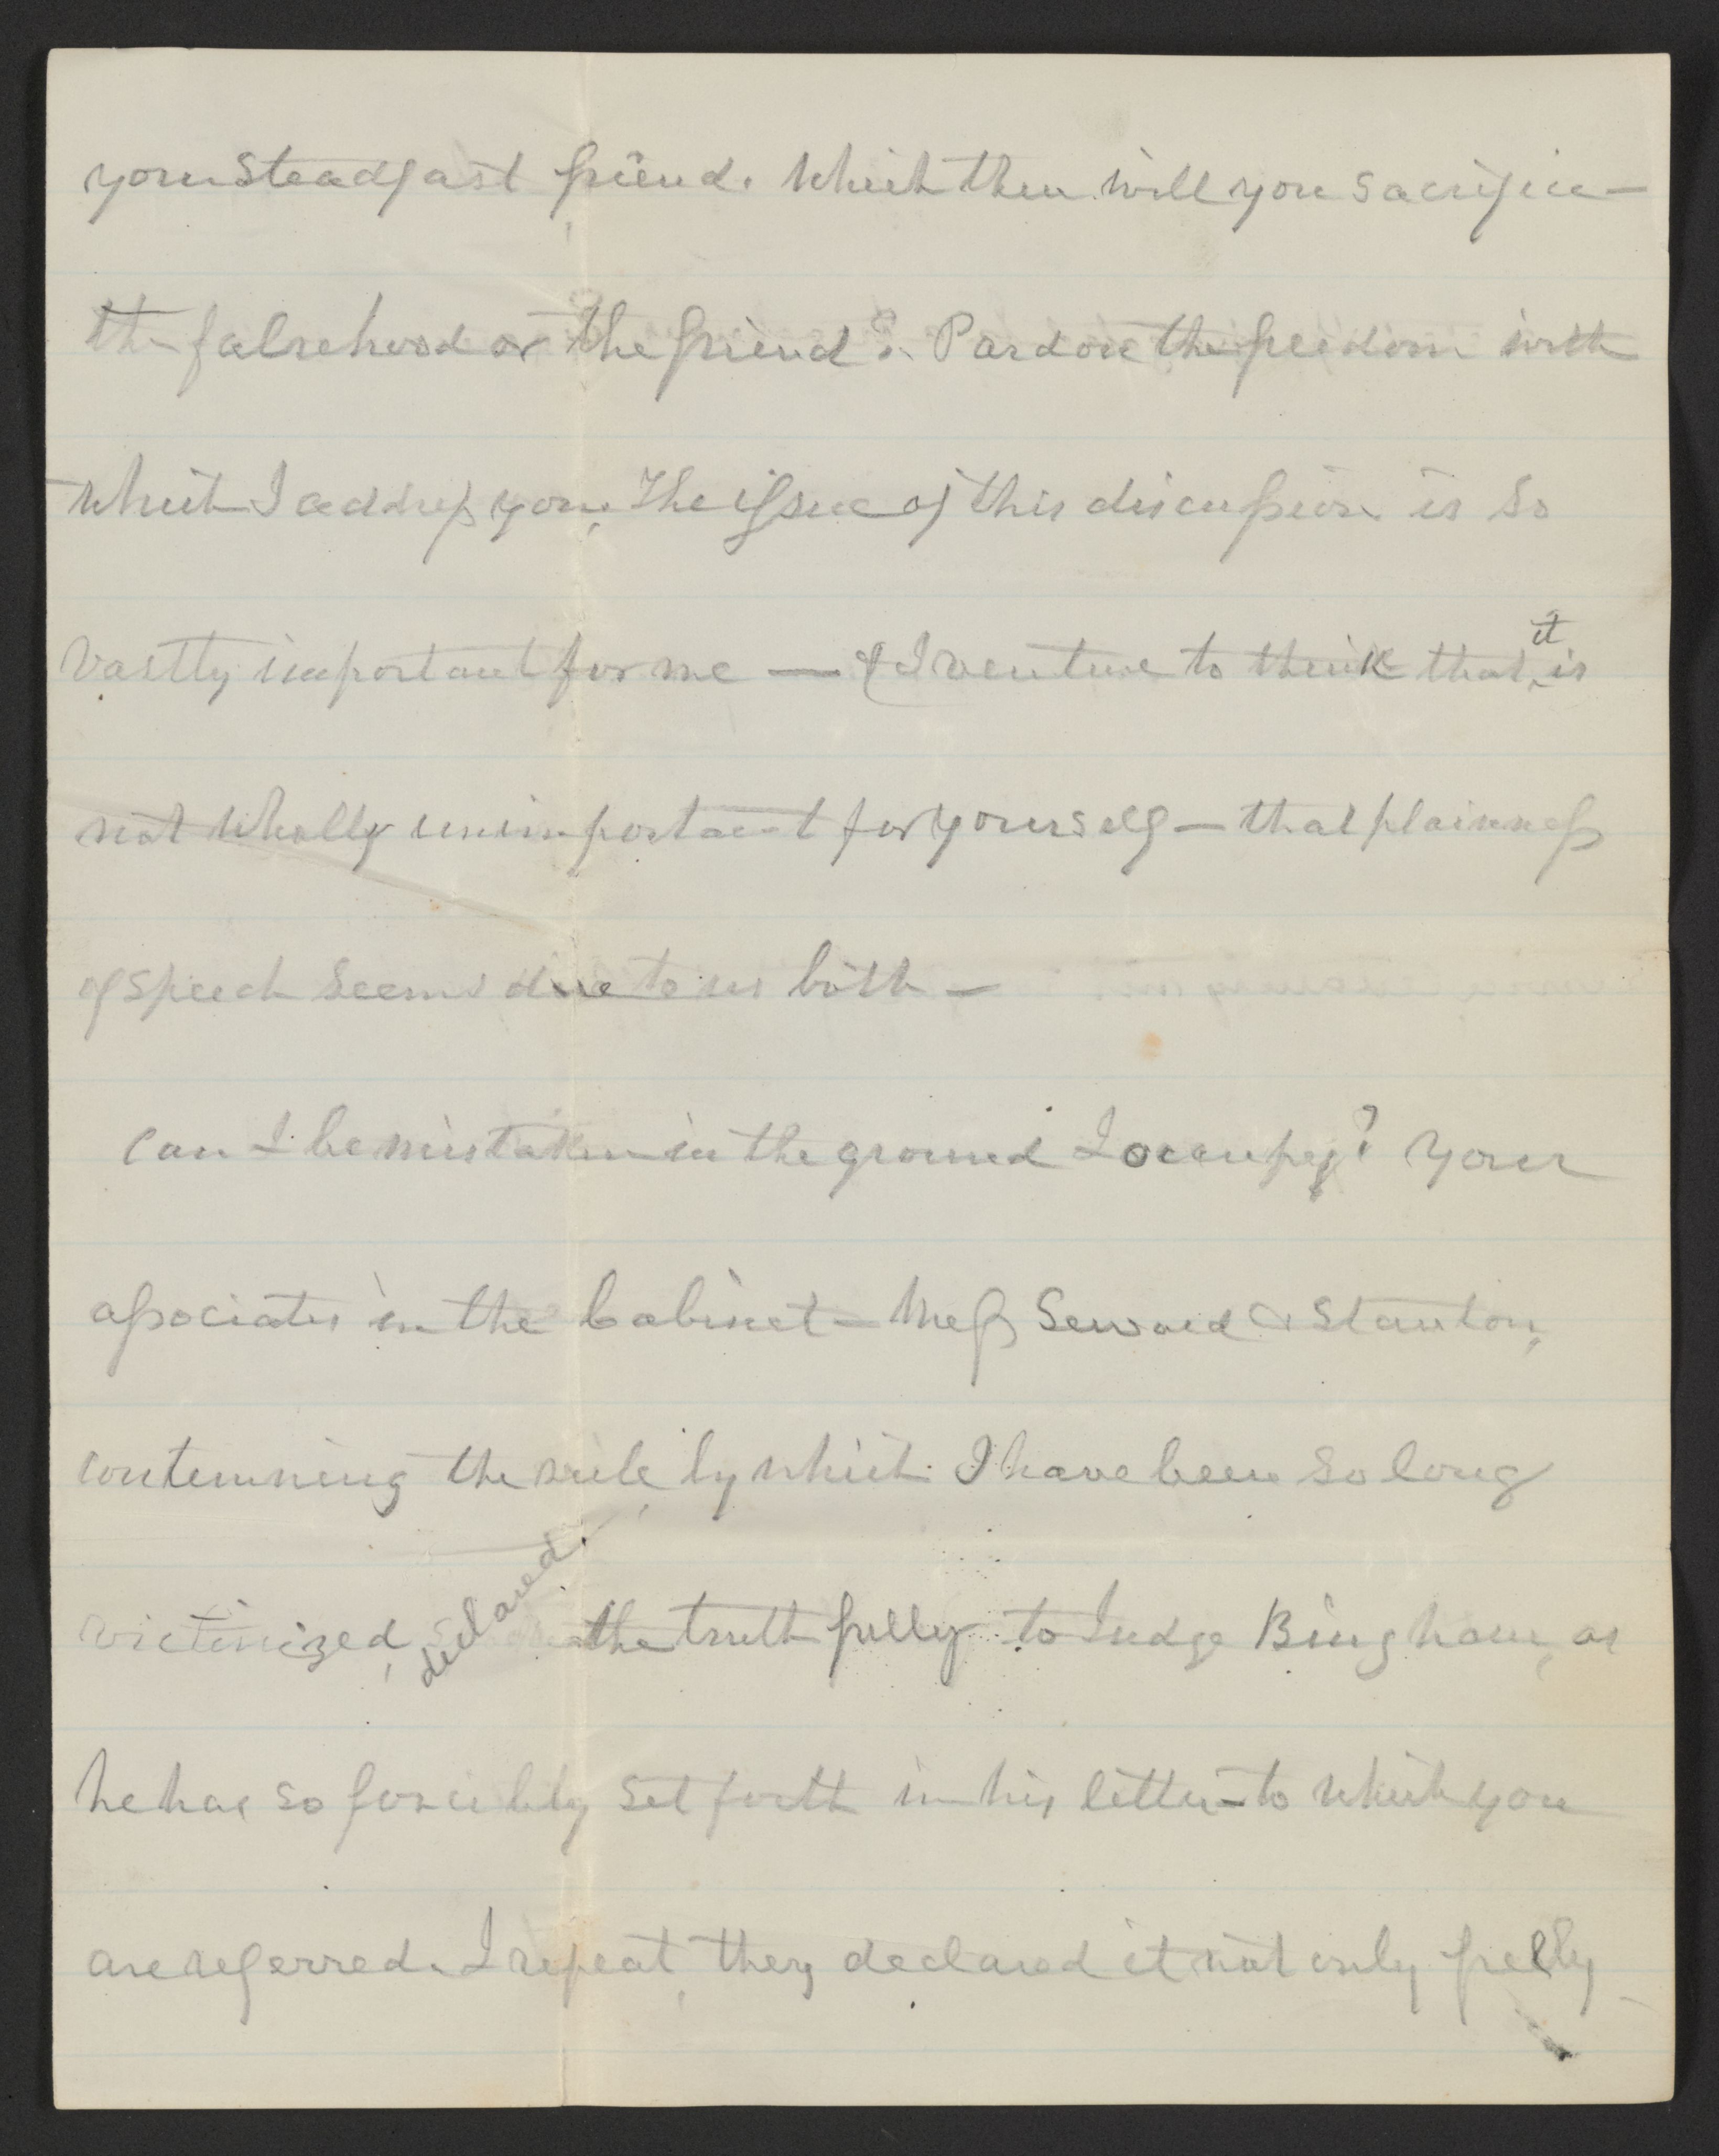 your steadfast friend. Which then will you sacrifice—
the falsehood or the friend? Pardon the freedom with
which I address you. The issue of this discussion is so
vastly important for me — & I venture to think that it is
not wholly unimportant for yourself — that plainness
of speech seems due to us both —
Can I be mistaken in the ground I occupy? Your
associates in the Cabinet — Mess Seward & Stanton,
contemning the rule, by which I have been so long
victimized, declared the truth fully to Judge Bingham, as
he has so forcibly set forth in his letter — to which you
are referred. I repeat, they declared it not only fully